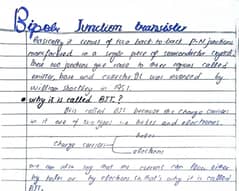 Bipolar Junction transistor
Basically it consist of two back to back P-N junctions
manufactured in a single piece of semiconductor crystal.
These two junctions give raise to three regions called
emitter, base and collector. It was invented by
William Shockley in 1951.
• why it is called BJT?
This is called BJT because the charge carriers
in it are of two types i.e holes and electrons.
holes
charge carriers
electrons
we can also say that the current can flow either
by holes or by electrons so that's why it is called
BJT.